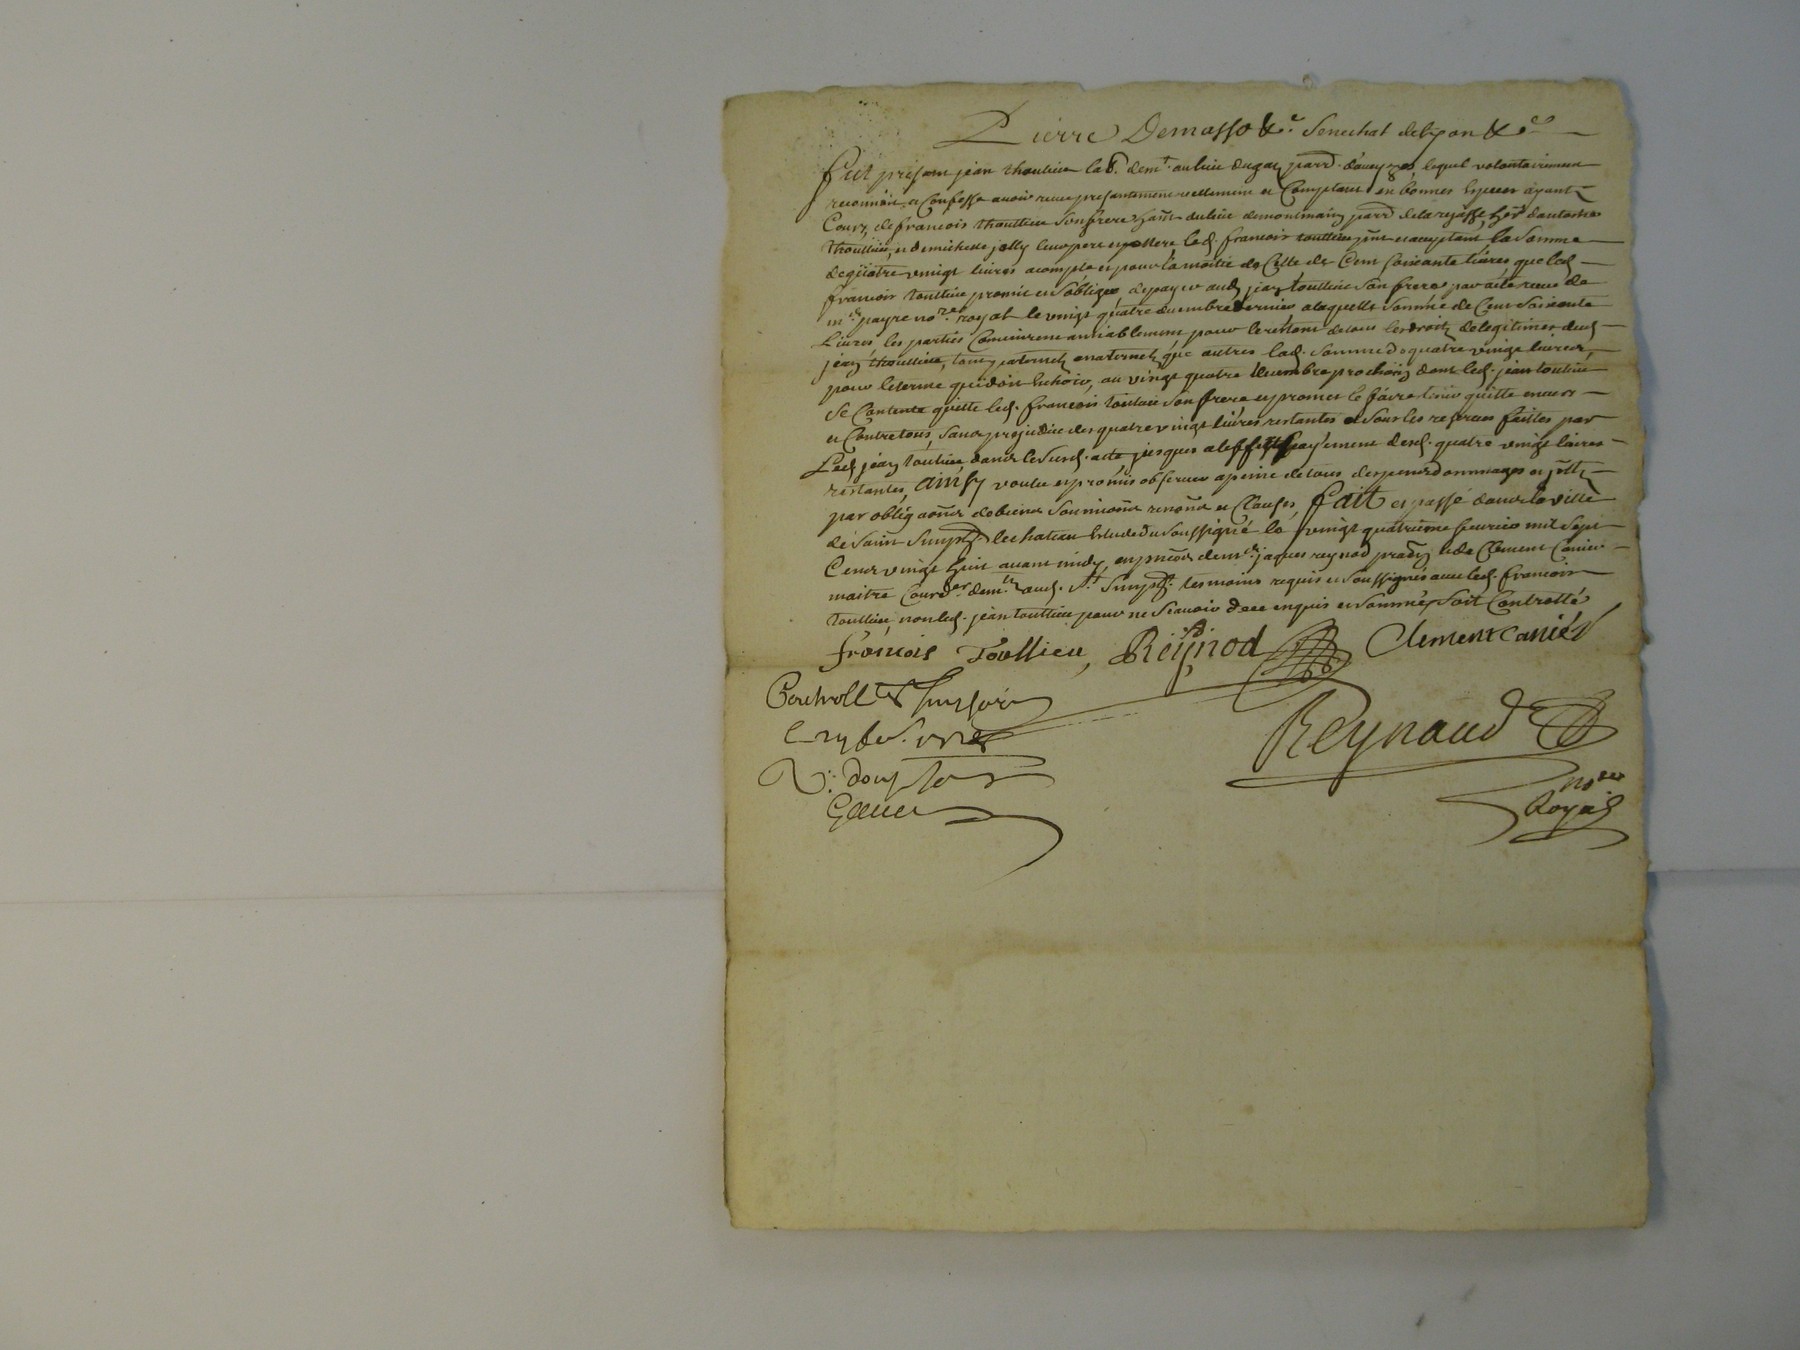 Pierre Demasso &c. Senechal de lyon &c.
fut present jean thoullieu lab.r dem.t au lieu du gas parr. d'aveyzes, lequel volontairement
reconnoit et Confesse avoir receu presantement reellement et Comptant en bonnes especes ayant
Cours, de francois thoullieu son frere hant du lieu de montmain parr. de larajasse, her. d'antoine
thoullieu, et de michelle jolly leur pere et mere led. francois toullieu pnt et acceptant, la somme
de quatre vingt livres a compte et pour la moitié de Celle de Cent soixante livres que led.
francois toullieu promit et s'obligea de payer aud. jean toullieu son frere par acte receu de
m.e payre no.re royal le vingt quatre decembre dernier, a laquelle somme de Cent soixante
Livres les parties Convinrent amiablement pour le restant de tous les droits de legitimes dud.
jean thoullieu, tant paternels maternels que autres lad. somme de quatre vingt livres,
pour le terme qui doit echoir, au vingt quatre decembre prochain dont led. jean toullieu
se Contente quitte led. francois toullieu son frere et promet le faire tenir quitte envers
et Contre tous, sans prejudice des quatre vingt livres restantes et sous les reserves faittes par
Led. jean toullieu dans le susd. acte jusques a l'effectif payement desd. quatre vingt livres
restantes, ainsy voulu et promis observer a peine de tous despens dommages et jntts
par obligaons de biens soumissions renons et Clauses, fait et passé dans la ville
de Saint Simph. le chateau Etude du soussigné le vingt quatrieme fevrier mil sept
Cent vingt huit avant midy, en pnces de m.e jaques reynod praticn et de Clement Canier
maitre Cour.er dem.ts aud. St. Simph. tesmoins requis et soussignés avec led. francois
toullieu, non led. jean toullieu pour ne sçavoir de ce enquis et sommés, soit Controllé
francois Toullieu, Reynod Clement Canier
Controllé
Reynaud
no.re
Royal